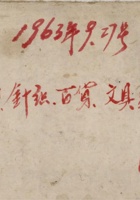 1963年9.27号
針織.百貨.文具.